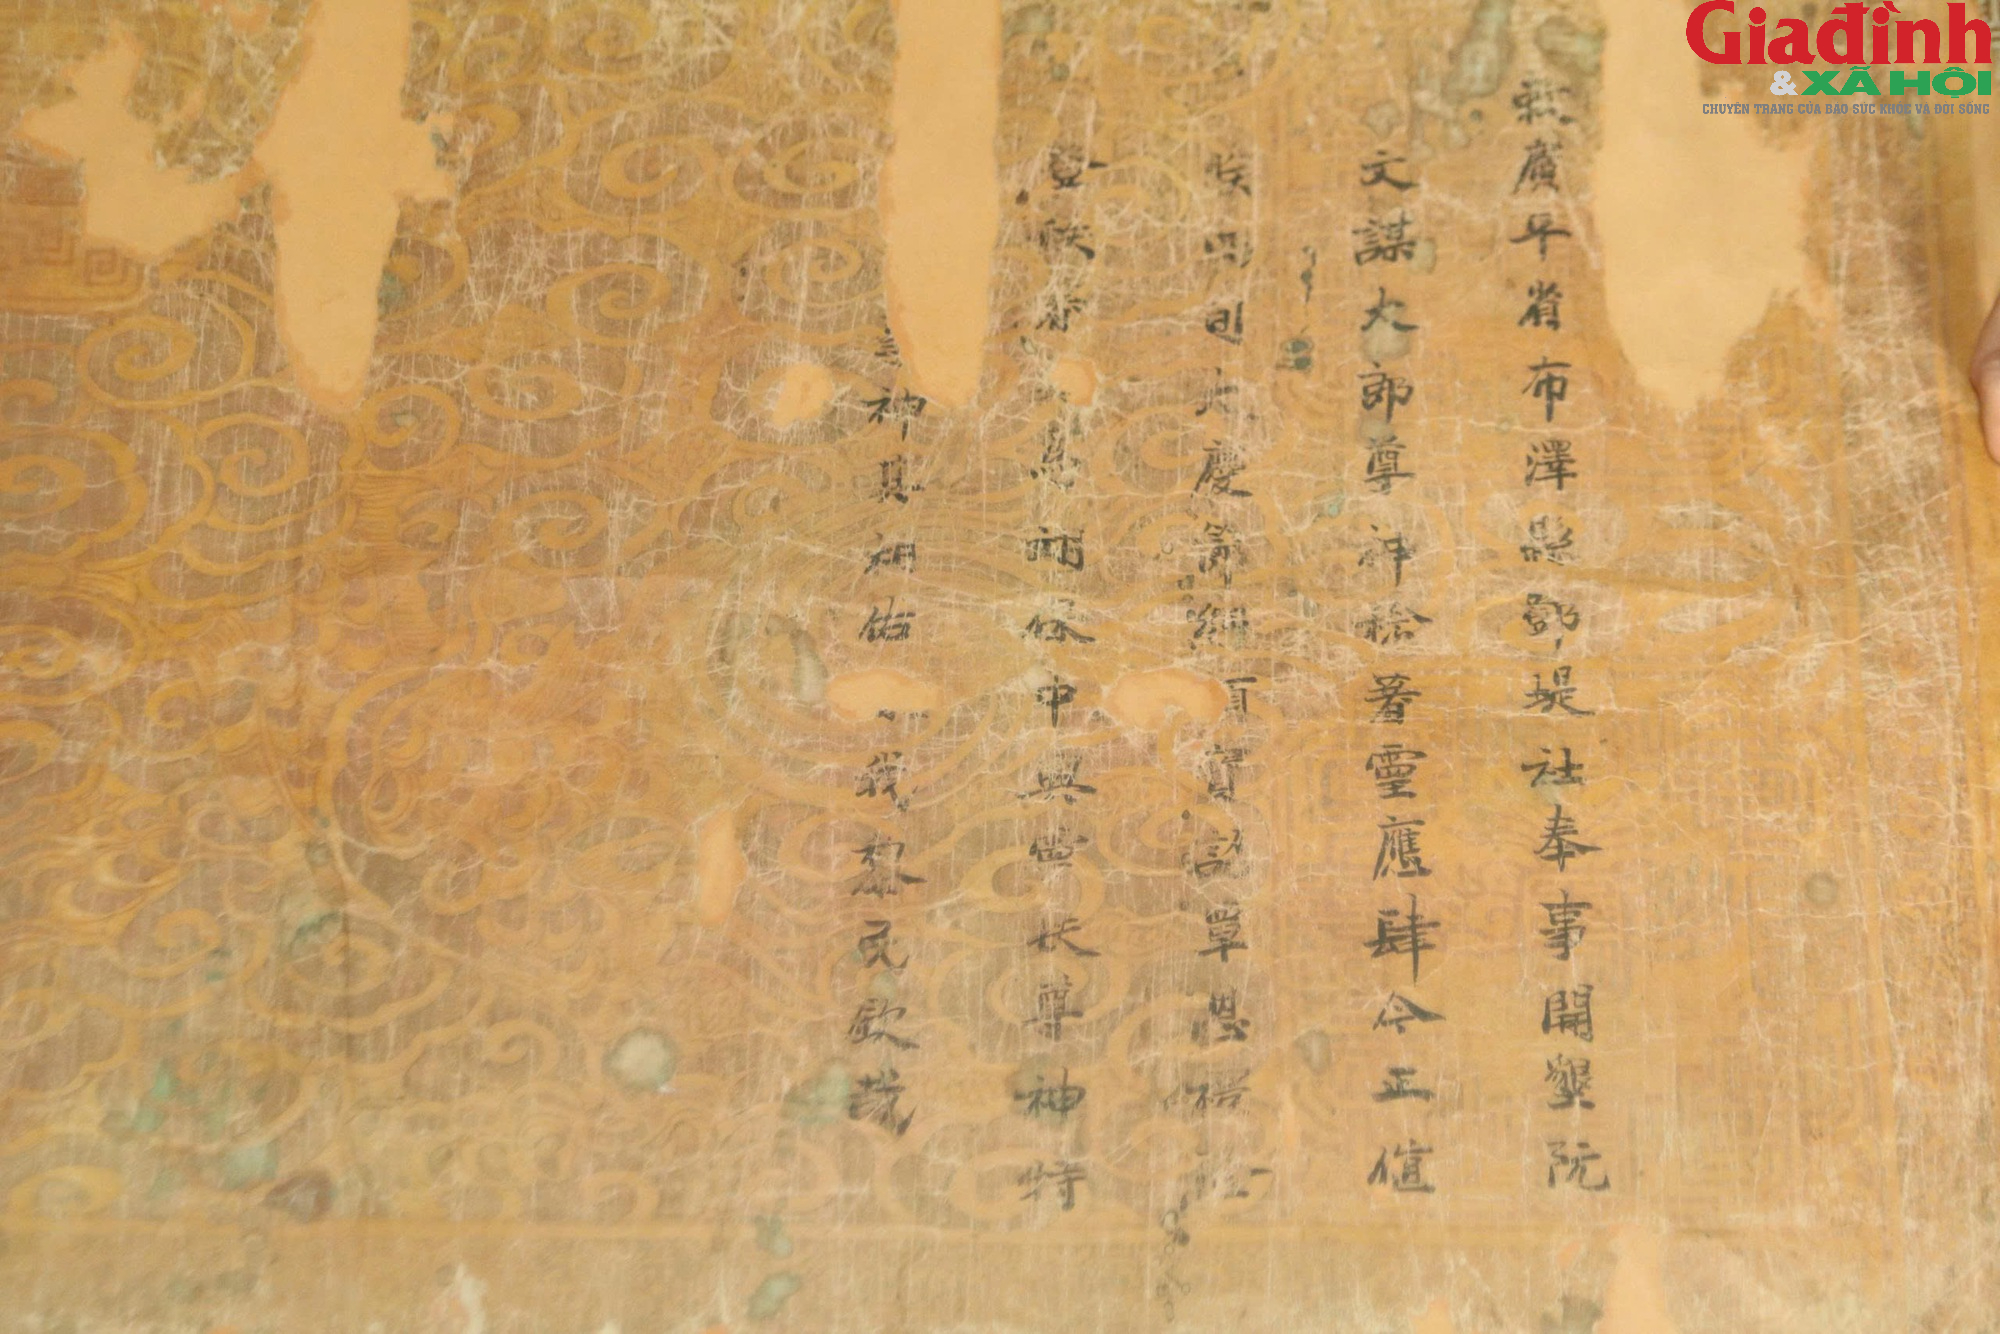 Giađình
& XÃ HỘI
CHUYÊN TRANG CỦA BÁO SỨC KHỎE VÀ ĐỜI SỐNG
敕廣平省布澤縣鄧堤社奉事開墾阮
文謀大郎尊神稔著靈應肆今正值
朕四旬大慶節經頒寶詔覃恩禮隆
登秩為翊保中興靈扶尊神特
神其相佑我黎民欽哉